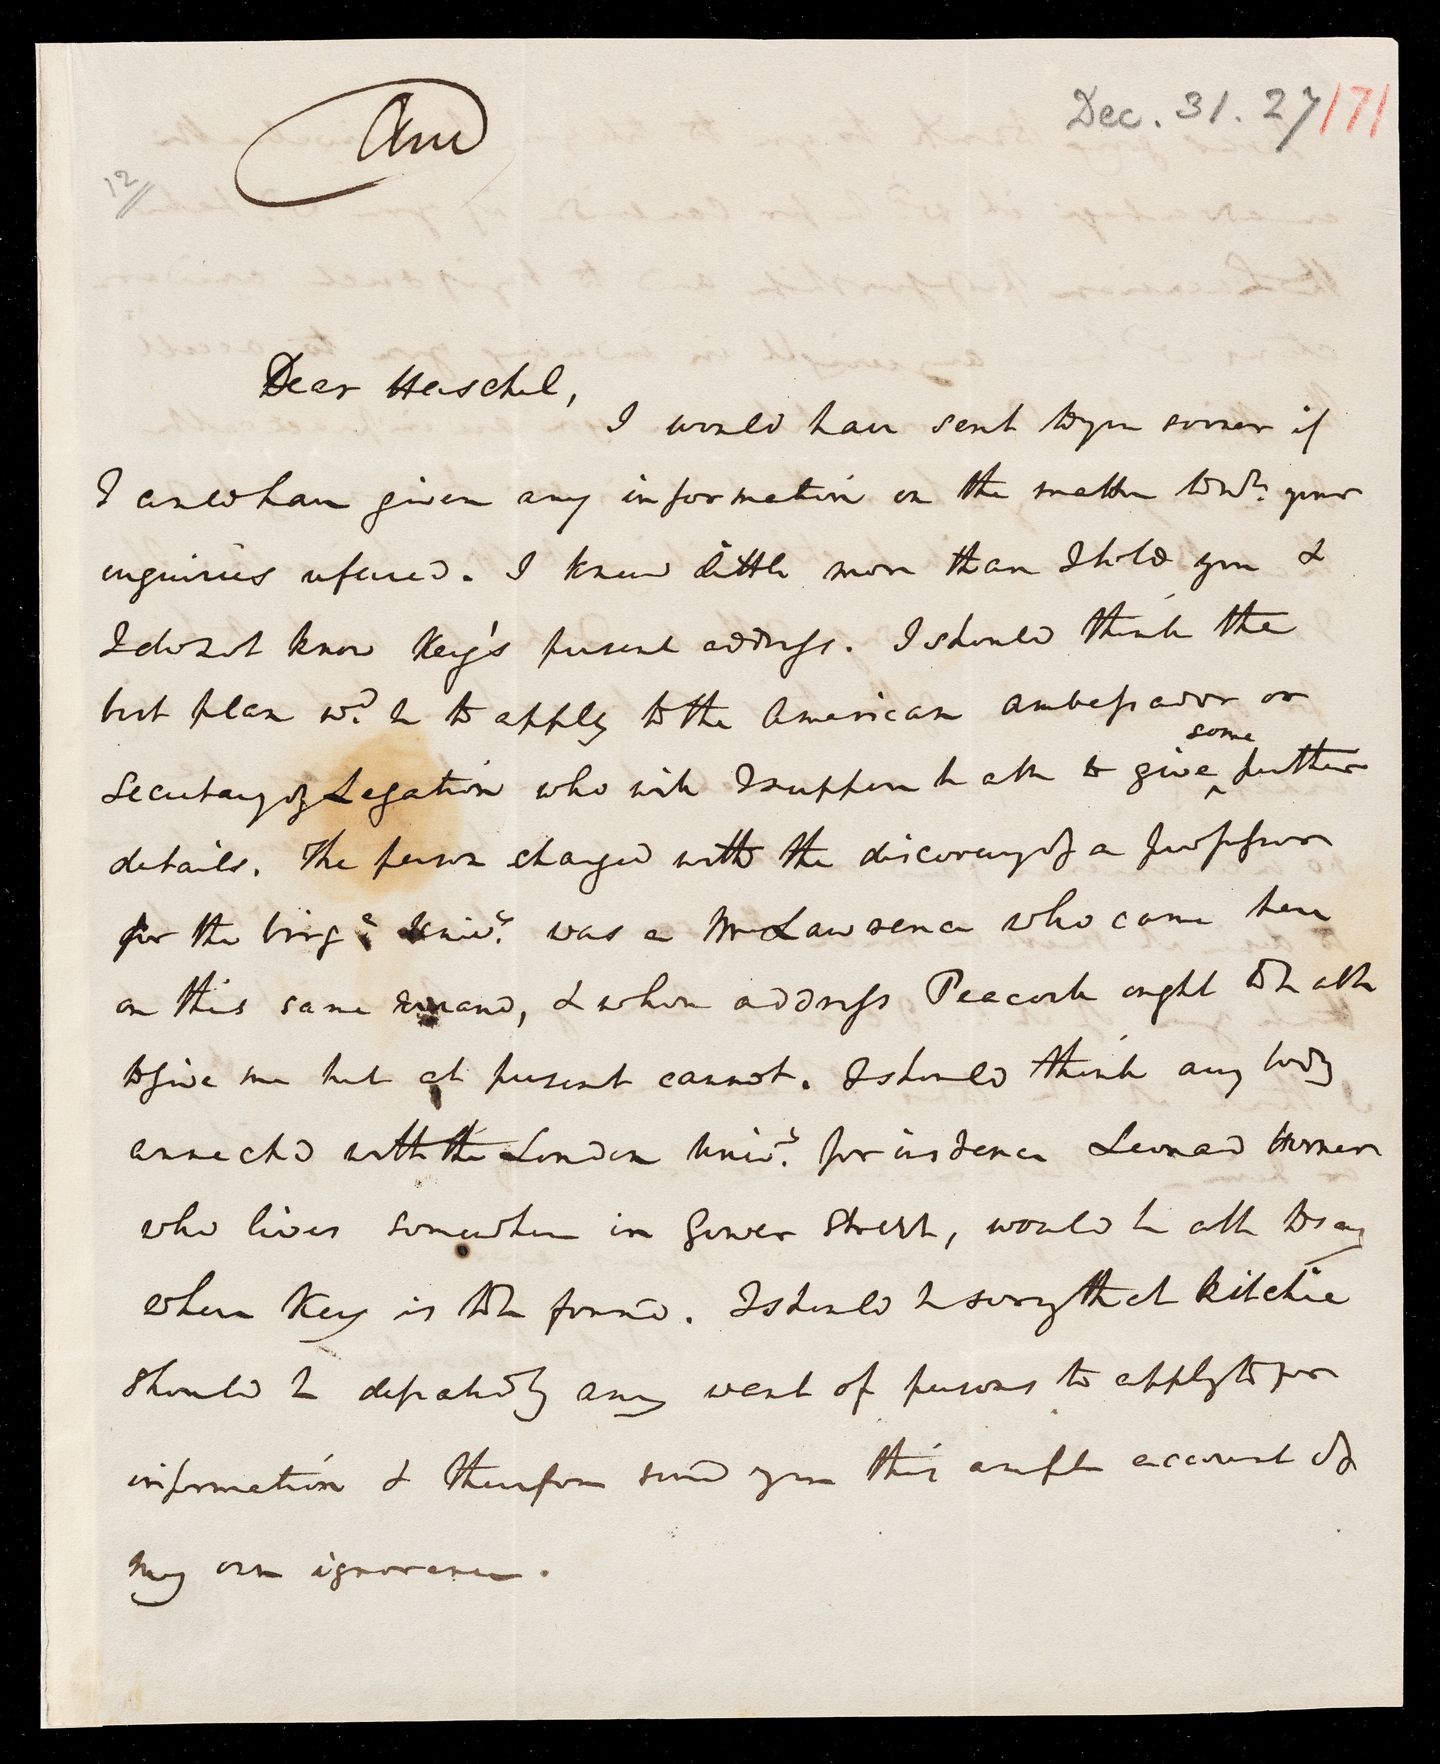 Ansd
Dec. 31. 27/71
12
Dear Herschel,
I would have sent to you sooner if
I could have given any information on the matter to wh. your
enquiries referred. I know little more than I told you &
I do not know Key's present address. I should think the
best plan wd. be to apply to the American ambassador or
Secretary of Legation who will I suppose be able to give some further
details. The person charged with the discovery of a professor
for the Virga. Univy. was a Mr Lawrence who came here
on this same errand, & whose address Peacock ought to be able
to give me but at present cannot. I should think any body
connected with the London Univy. for instance Leonard Horner
who lives somewhere in Gower Street, would be able to say
where Key is to be found. I should be sorry that Ritchie
should be defeated by any want of persons to apply to for
information & therefore send you this ample account of
my own ignorance.